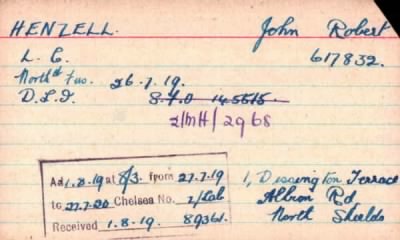 HENZELL. John Robert
L. C. 617832.
North'd Fus. 26.7.19.
D.L.I. 8.4.0 145515.
2/MH/2968
Ad 1.8.19 at 8/3. from 27.7.19
to 27.7.20 Chelsea No. 2/
Received 1.8.19. 89361.
1, Dissington Terrace
Albion Rd
North Shields